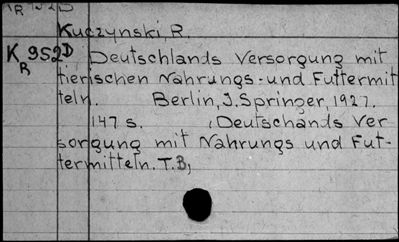 Kuczynski, R.
K R 952D Deutschlands Versorgung mit
tierischen Nahrungs-und Futtermit
teln. Berlin, J. Springer, 1927.
147 s. (Deutschands Ver
sorgung mit Nahrungs und Fut-
termitteln. T.B,